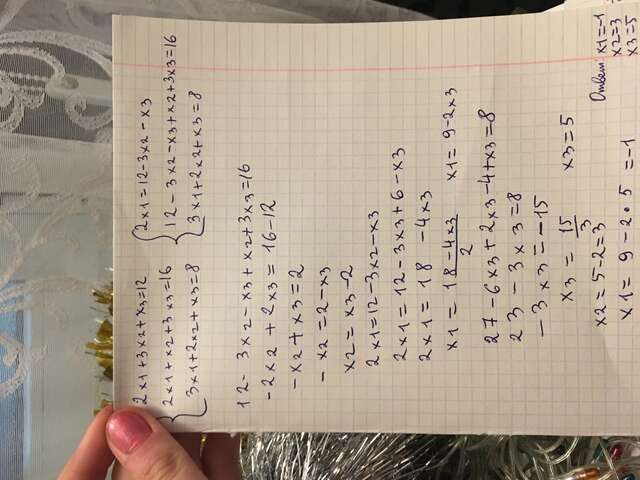 2x1+3x2+x3=12
2x1+x2+3x3=16
3x1+2x2+x3=8
2x1=12-3x2-x3
12-3x2-x3+x2+3x3=16
3x1+2x2+x3=8
12-3x2-x3+x2+3x3=16
-2x2+2x3=16-12
-x2+x3=2
-x2=2-x3
x2=x3-2
2x1=12-3x2-x3
2x1=12-3x3+6-x3
2x1=18 -4x3
x1=18-4x3/2 x1=9-2x3
27-6x3+2x3-4+x3=8
23-3x3=8
-3x3=-15
x3=15/3 x3=5
x2=5-2=3
x1=9-2•5=-1
Ответ: x1=-1
x2=3
x3=5